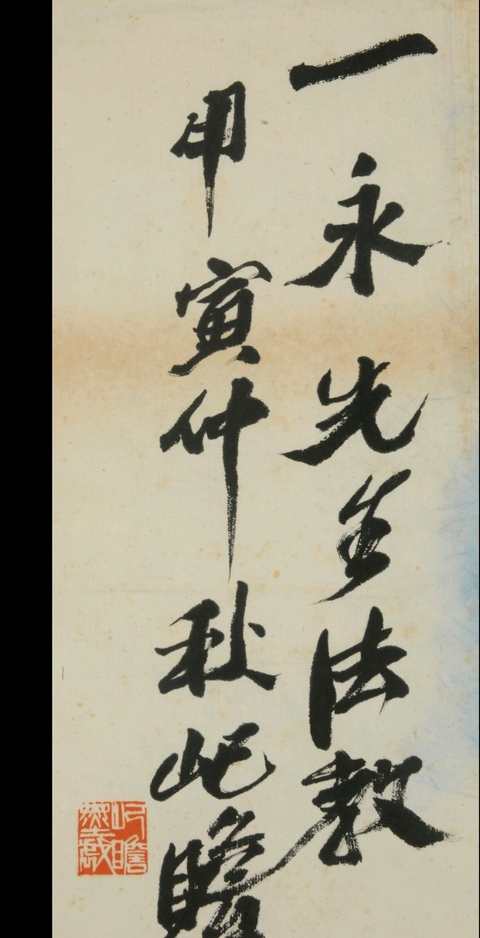 一永先生法教
甲寅仲秋屺瞻
屺瞻